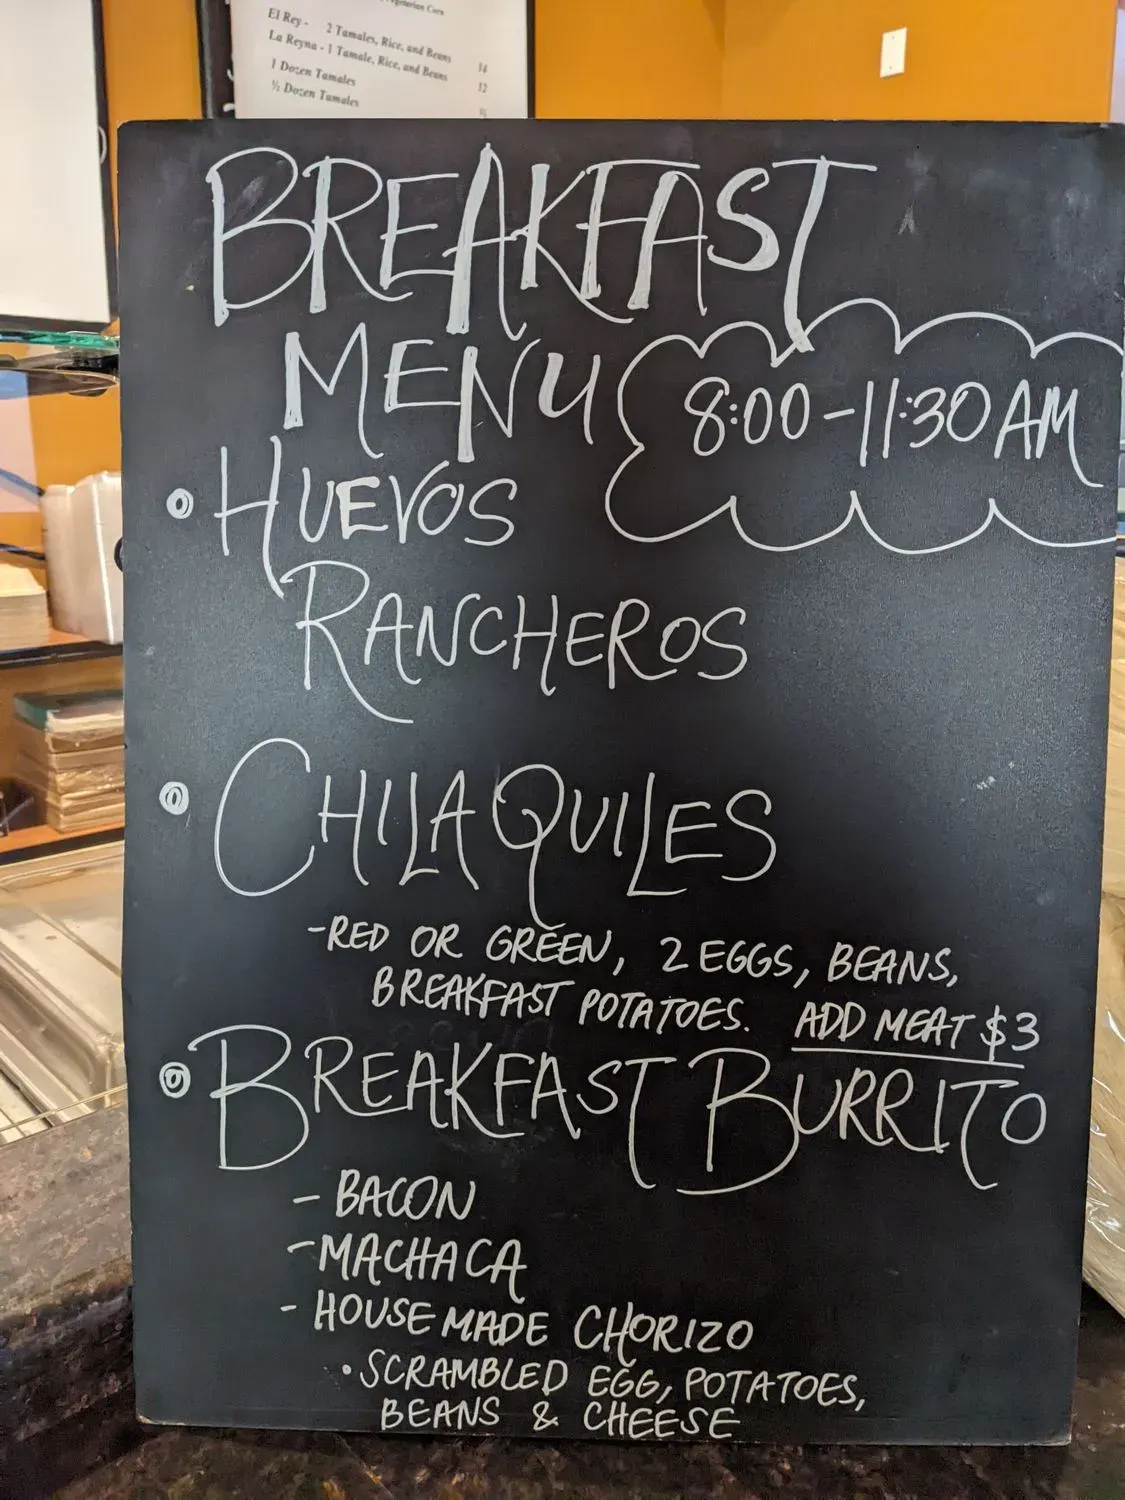 Vegetarian Corn
El Rey - 2 Tamales, Rice, and Beans 14
La Reyna - 1 Tamale, Rice, and Beans 12
1 Dozen Tamales
½ Dozen Tamales
BREAKFAST
MENU
8:00-11:30AM
HUEVOS
RANCHEROS
CHILAQUILES
-RED OR GREEN, 2 EGGS, BEANS,
BREAKFAST POTATOES. ADD MEAT $3
BREAKFAST BURRITO
- BACON
- MACHACA
- HOUSEMADE CHORIZO
• SCRAMBLED EGG, POTATOES,
BEANS & CHEESE